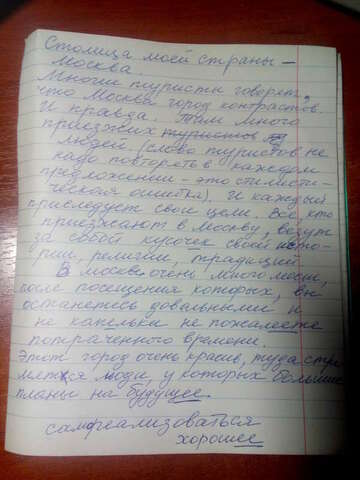 Столица моей страны –
Москва.
Многие туристы говорят,
что Москва город контрастов.
И правда. Там много
приезжих туристов
людей. (слово туристов не
надо повторять в каждом
предложении – это стилисти-
ческая ошибка). И каждый
приследует свои цели. Все, кто
приезжают в Москву, везут
за собой кусочек своей исто-
рии, религии, традиций.
В Москве очень много мест,
после посещения которых, вы
останетесь довольными и
не капельки не пожалеете
потраченного времени.
Этот город очень красив, туда стре
мятся люди, у которых большие
планы на будущее.
самореализоваться
хорошее